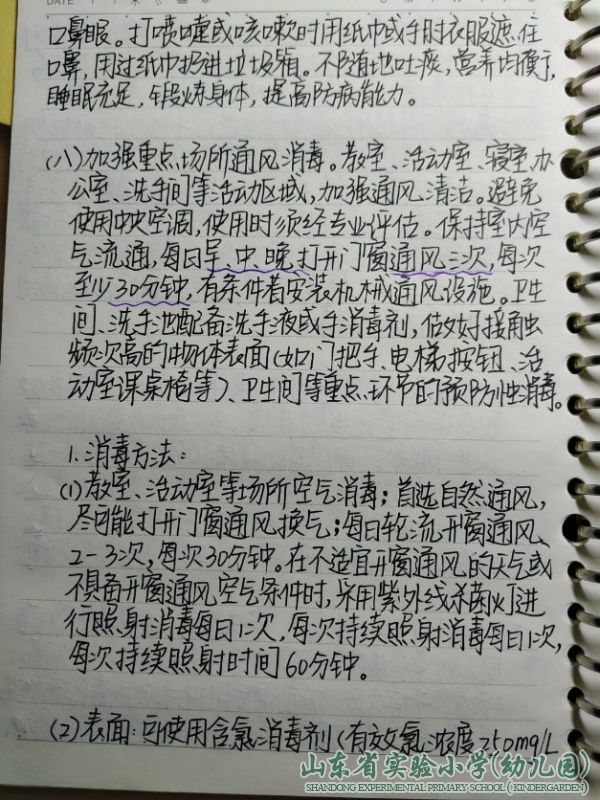 口鼻眼。打喷嚏或咳嗽时用纸巾或手肘衣服遮住
口鼻,用过纸巾扔进垃圾箱。不随地吐痰,营养均衡,
睡眠充足,锻炼身体,提高防病能力。
(八)加强重点场所通风消毒。教室、活动室、寝室、办
公室、洗手间等活动区域,加强通风清洁。避免
使用中央空调,使用时须经专业评估。保持室内空
气流通,每日早、中、晚打开门窗通风三次,每次
至少30分钟。有条件者安装机械通风设施。卫生
间、洗手池配备洗手液或手消毒剂,做好接触
频次高的物体表面(如门把手、电梯按钮、活
动室课桌椅等)、卫生间等重点环节的预防性消毒。
1.消毒方法:
(1)教室、活动室等场所空气消毒;首选自然通风,
尽可能打开门窗通风换气;每日轮流开窗通风、
2-3次,每次30分钟。在不适宜开窗通风的天气或
不具备开窗通风空气条件时,采用紫外线杀菌灯进
行照射消毒每日1次,每次持续照射消毒每日1次,
每次持续照射时间60分钟。
(2)表面:可使用含氯消毒剂(有效氯浓度250mg/L
山东省实验小学(幼儿园)
SHANDONG EXPERIMENTAL PRIMARY SCHOOL (KINDERGARDEN)